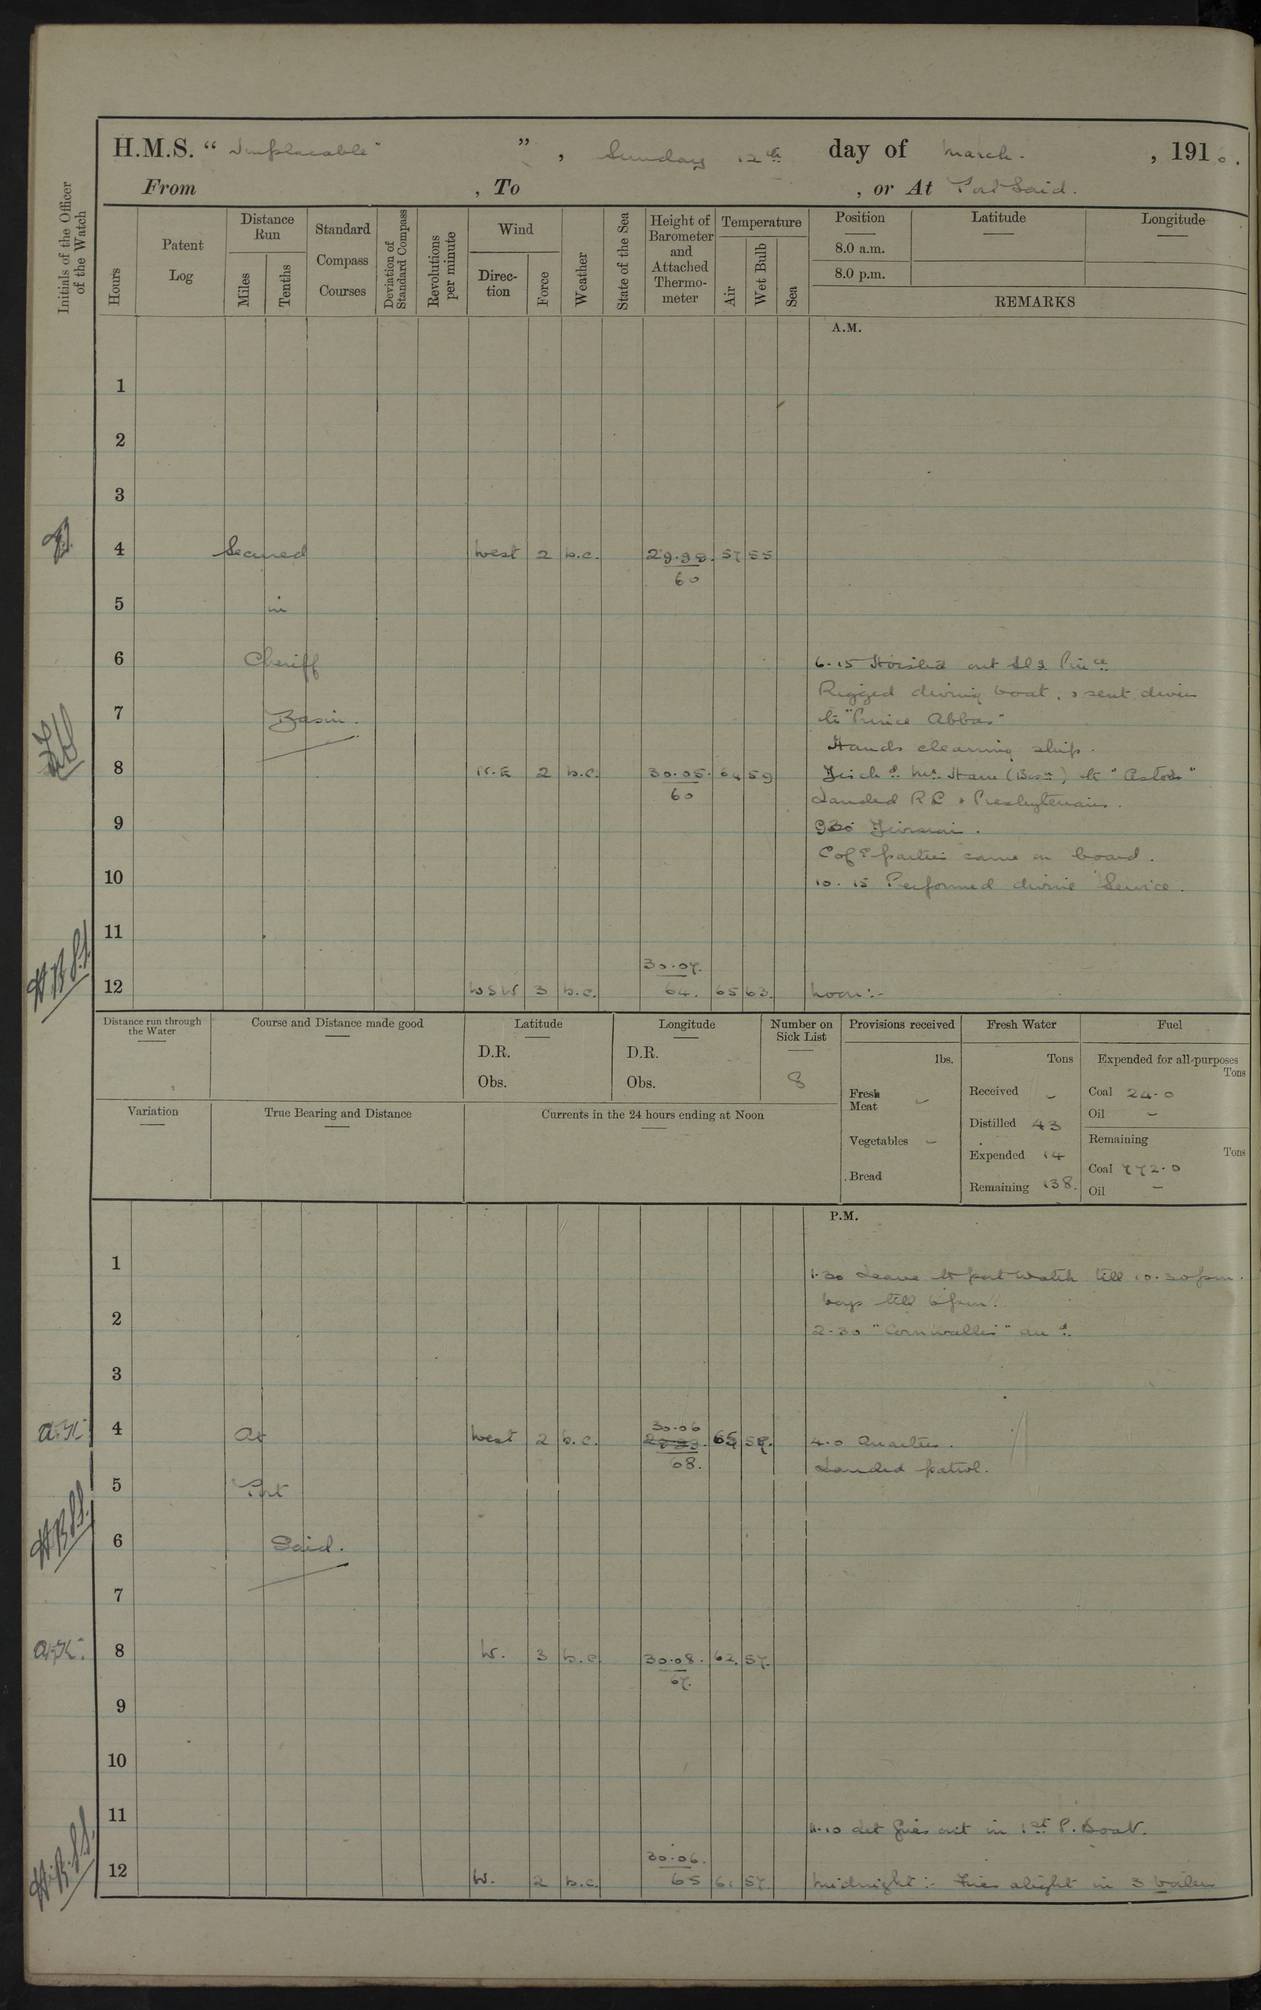 H.M.S. “ Implacable ” , Sunday 12th day of March. , 1916.
From , To , or At Port Said.
Initials of the Officer of the Watch
Hours
Patent Log
Distance Run
Miles
Tenths
Standard Compass Courses
Deviation of Standard Compass
Revolutions per minute
Wind
Direc-tion
Force
Weather
State of the Sea
Height of Barometer and Attached Thermo-meter
Temperature
Air
Wet Bulb
Sea
Position Latitude Longitude
8.0 a.m.
8.0 p.m.
REMARKS
A.M.
1
2
3
4 Secured West 2 b.c. 29.98. 57 55
60
5 in
6 Cheriff 6.15 Hoisted out
Rigged diving boat, & sent diver
7 Basin. to "Prince Abbas"
Hands cleaning ship.
8 N.E 2 b.c. 30.05. 64 59
60
Landed R.C & Presbyterians.
9 9.30 Divisions.
C of E parties came on board.
10 10.15 Performed divine Service.
11
30.07.
12 WSW 3 b.c. 64. 65 63. Noon:-
Distance run through the Water
Course and Distance made good
Latitude
D.R.
Obs.
Longitude
D.R.
Obs.
Number on Sick List
8
Provisions received
lbs.
Fresh Meat –
Vegetables –
Bread
Fresh Water
Tons
Received –
Distilled 43
Expended 14
Remaining 138.
Fuel
Expended for all purposes
Tons
Coal 24.0
Oil –
Remaining
Tons
Coal 772.0
Oil –
Variation
True Bearing and Distance
Currents in the 24 hours ending at Noon
P.M.
1 1.30 Leave to port watch till 10.30 pm.
boys till 6 pm.
2 2.30 "Cornwallis" arrd.
3
30.06
A.K. 4 At West 2 b.c. 68. 65 58. 4.0 Quarters.
Landed patrol.
5 Port
H.B.S.S. 6 Said.
7
A.K. 8 W. 3 b.c. 30.08. 62. 57.
67.
9
10
11 11.10 Let fires out in 1st P. Boat.
30.06.
H.B.S.S. 12 W. 2 b.c. 65 61 57. Midnight:- Fires alight in 3 boilers